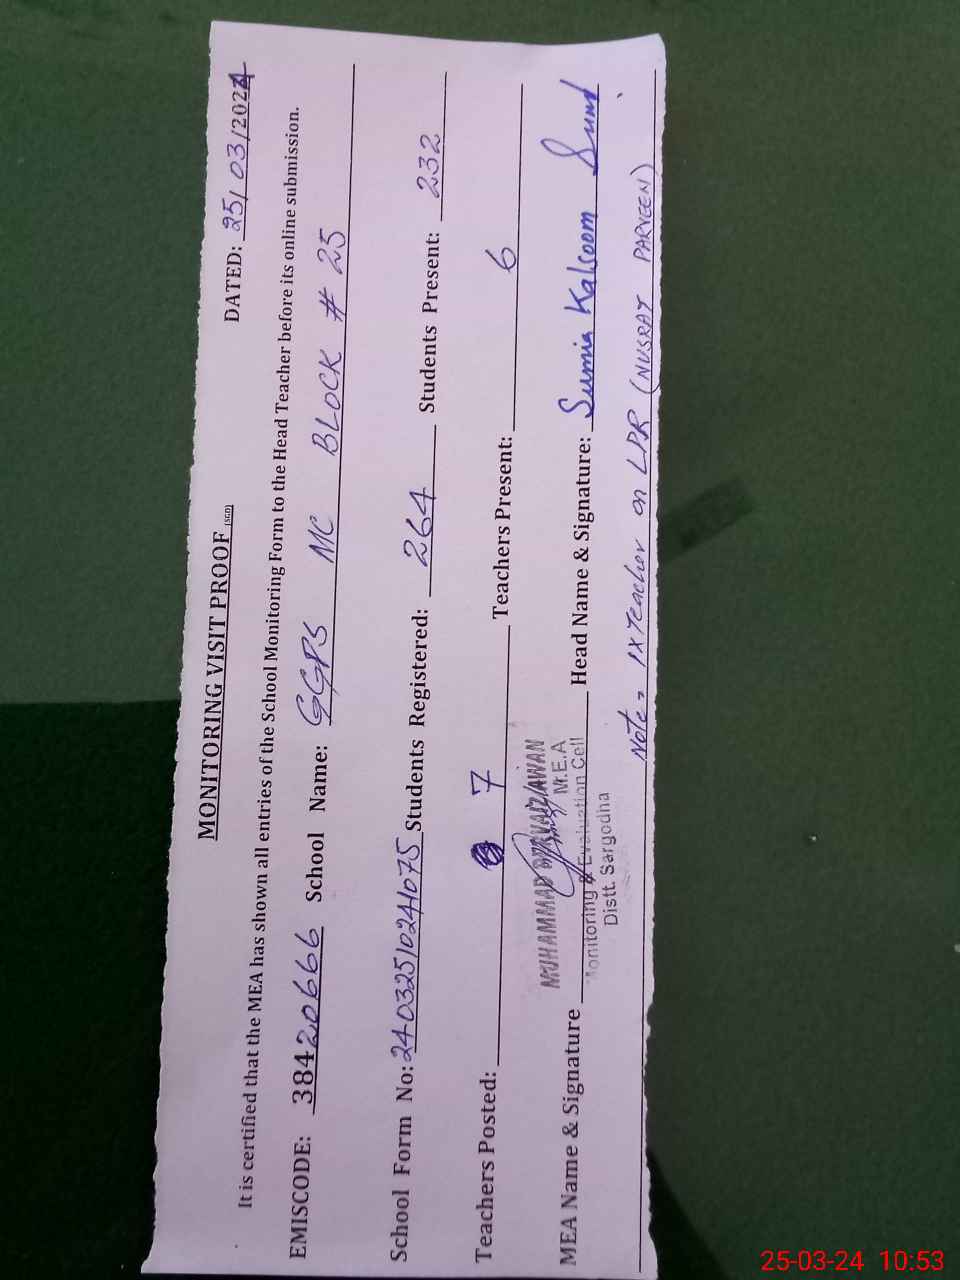 MONITORING VISIT PROOF (SGD)
DATED: 25/03/2024
It is certified that the MEA has shown all entries of the School Monitoring Form to the Head Teacher before its online submission.
EMISCODE: 38420666 School Name: GGPS MC BLOCK # 25
School Form No: 24032510241075 Students Registered: 264 Students Present: 232
Teachers Posted: 7 Teachers Present: 6
MUHAMMAD PARVAIZ AWAN
M.E.A
MEA Name & Signature Head Name & Signature: Sumia Kalsoom
Monitoring & Evaluation Cell
Distt. Sargodha
Note: 1x Teacher on LPR (NUSRAT PARVEEN)
25-03-24 10:53